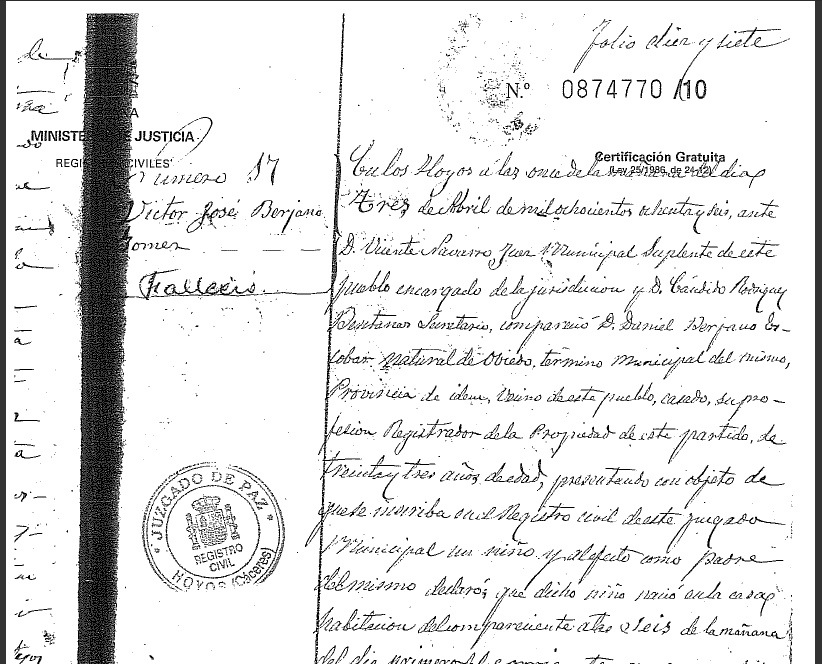 Folio diez y siete
N.º 0874770 /10
MINISTE DE JUSTICIA
REGI CIVILES
Certificación Gratuita
(Ley 25/1986, de 24-12)
Numero 17
Victor José Berjano
Gomez
Falleció
En los Hoyos a las once de la del dia
Tres de Abril de mil ochocientos ochenta y seis, ante
D. Vicente Navarro Juez Municipal Suplente de este
pueblo encargado de la jurisdiccion y D. Cándido Rodriguez
Secretario, compareció D. Daniel Berjano Es-
cobar natural de Oviedo, término municipal del mismo,
Provincia de idem, Vecino de este pueblo, casado, su pro-
fesion Registrador de la Propiedad de este partido, de
treinta y tres años de edad, presentando con objeto de
que se inscriba en el Registro civil de este juzgado
Municipal un niño y al efecto como padre
del mismo declaró, que dicho niño nació en la casa
habitacion del compareciente a las seis de la mañana
del dia primero del
JUZGADO DE PAZ
REGISTRO
CIVIL
HOYOS (Cáceres)